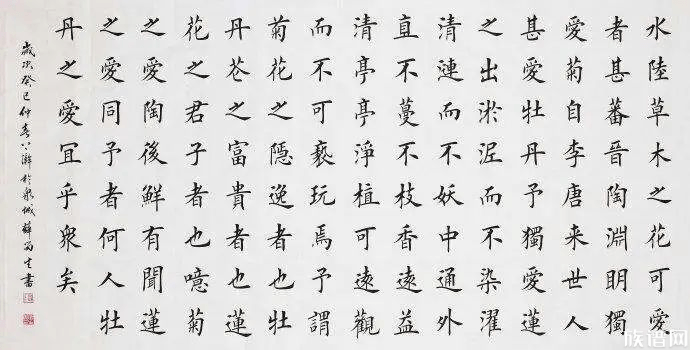 水陸草木之花可愛
者甚蕃晉陶淵明獨
愛菊自李唐来世人
甚愛牡丹予獨愛蓮
之出淤泥而不染濯
清漣而不妖中通外
直不蔓不枝香遠益
清亭亭淨植可遠觀
而不可褻玩焉予謂
菊花之隱逸者也牡
丹花之富貴者也蓮
花之君子者也噫菊
之愛陶後鮮有聞蓮
之愛同予者何人牡
丹之愛宜乎衆矣
歲次癸巳仲春於泉城薛生書
族谱网